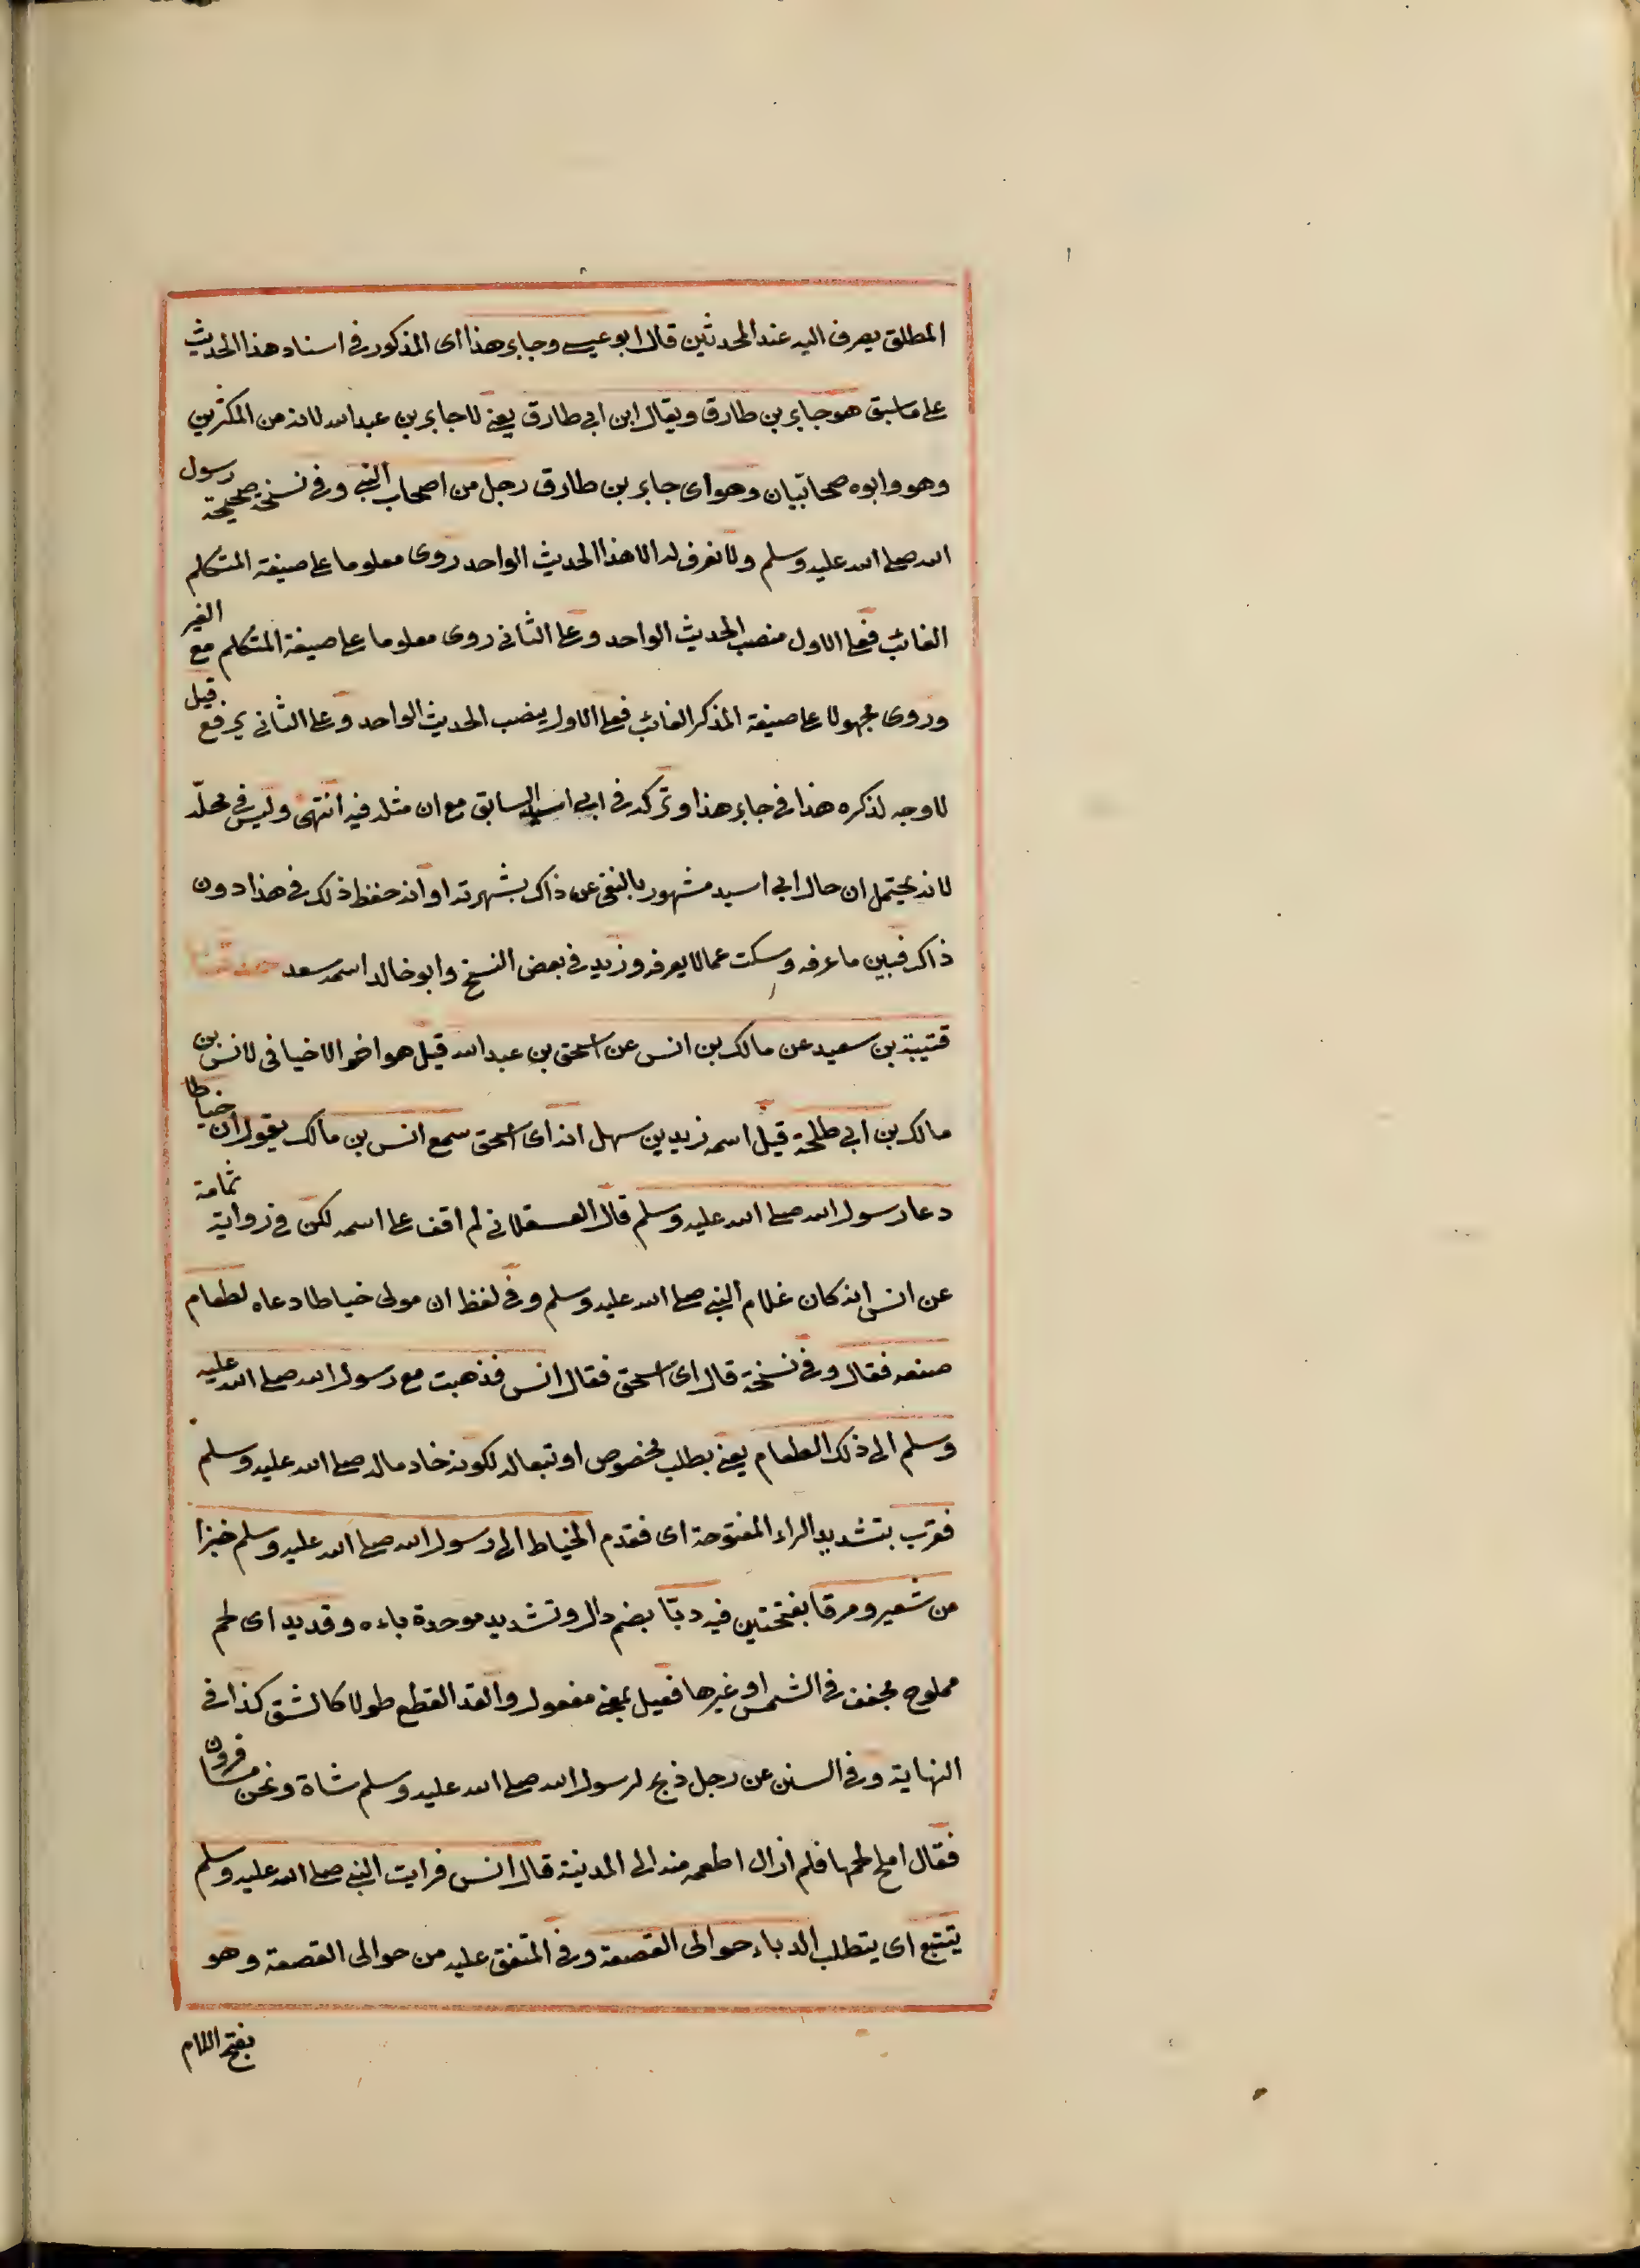 المطلق يصرف اليه عند المحدثين قال ابو عيسى وجابر هذا اى المذكور فى اسناد هذا الحديث
على ما سبق هو جابر بن طارق ويقال ابن ابى طارق يعنى لا جابر بن عبد الله لانه من المكثرين
وهو وابوه صحابيان وهو اى جابر بن طارق رجل من اصحاب النبى وفى نسخة صحيحة رسول
الله صلى الله عليه وسلم ولا نعرف له الا هذا الحديث الواحد روى معلوما على صيغة المتكلم
الغائب فعلى الاول منصب الحديث الواحد وعلى الثانى روى معلوما على صيغة المتكلم مع الغير
وروى مجهولا على صيغة المذكر الغائب فعلى الاول ينصب الحديث الواحد وعلى الثانى يرفع قيل
لا وجه لذكره هذا فى جابر هذا وتركه فى ابى اسيد السابق مع ان مثله فيه انتهى وليس فى محله
لانه يحتمل ان حال ابى اسيد مشهور بالنفى عن ذاك بشهرته او انه حفظ ذلك فى هذا دون
ذاك فبين ما عرفه وسكت عما لا يعرفه وزيد فى بعض النسخ وابو خالد اسمه سعد حدثنا
قتيبة بن سعيد عن مالك بن انس عن اسحق بن عبد الله قيل هو اخو الاخيافى لانس بن
مالك بن ابى طلحة قيل اسمه زيد بن سهل انه اى اسحق سمع انس بن مالك يقول ان خياطا
دعا رسول الله صلى الله عليه وسلم قال العسقلانى لم اقف على اسمه لكن فى رواية ثمامة
عن انس انه كان غلام النبى صلى الله عليه وسلم وفى لفظ ان مولى خياطا دعاه لطعام
صنعه فقال وفى نسخة قال اى اسحق فقال انس فذهبت مع رسول الله صلى الله عليه
وسلم الى ذلك الطعام يعنى بطلب مخصوص او تبعا له لكونه خادما له صلى الله عليه وسلم
فقرب بتشديد الراء المفتوحة اى فقدم الخياط الى رسول الله صلى الله عليه وسلم خبزا
من شعير ومرقا بفتحتين فيه دبّا بضم دال وتشديد موحدة باءه وقديد اى لحم
مملوح مجفف فى الشمس او غيرها فعيل بمعنى مفعول والقد القطع طولا كالشق كذا فى
النهاية وفى السنن عن رجل ذبح لرسول الله صلى الله عليه وسلم شاة ونحن مسافرون
فقال املح لحمها فلم ازال اطعمه منه الى المدينة قال انس فرايت النبى صلى الله عليه وسلم
يتتبع اى يتطلب الدباء حوالى القصعة وفى المتفق عليه من حوالى القصعة وهو
بفتح اللام